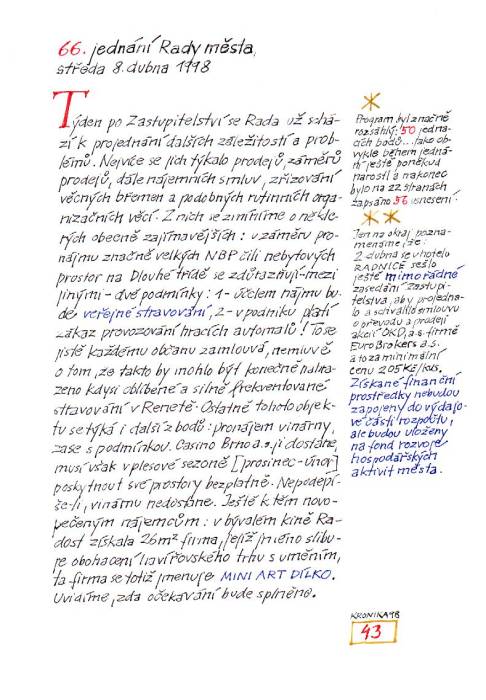 66. jednání Rady města,
středa 8. dubna 1998
Týden po Zastupitelství se Rada už schá-
zí k projednání dalších záležitostí a prob-
lémů. Nejvíce se jich týkalo prodejů, záměrů
prodejů, dále nájemních smluv, zřizování
věcných břemen a podobných rutinních orga-
nizačních věcí. Z nich se zmiňme o někte-
rých obecně zajímavějších: v záměru pro-
nájmu značně velkých NBP čili nebytových
prostor na Dlouhé třídě se zdůrazňují-mezi
jinými-dvě podmínky: 1-účelem nájmu bu-
de veřejné stravování, 2-v podniku platí
zákaz provozování hracích automatů! To se
jistě každému občanu zamlouvá, nemluvě
o tom, že takto by mohlo být konečně nahra-
zeno kdysi oblíbené a silně frekventované
stravování v Renetě. Ostatně tohoto objek-
tu se týká i další z bodů: pronájem vinárny,
zase s podmínkou. Casino Brno a.s. ji dostane,
musí však v plesové sezoně [prosinec-únor]
poskytnout své prostory bezplatně. Nepodepí-
še-li, vinárnu nedostane. Ještě k těm novo-
pečeným nájemcům: v bývalém kině Ra-
dost získala 26m² firma, jejíž jméno slibu-
je obohacení havířovského trhu s uměním,
ta firma se totiž jmenuje MINI ART DÍLKO.
Uvidíme, zda očekávání bude splněno.
Program byl značně
rozsáhlý: 50 jedna-
cích bodů... Jako ob-
vykle během jedná-
ní ještě poněkud
narostl a nakonec
bylo na 22 stranách
zapsáno 56 usnesení.
Jen na okraj pozna-
menáme, že:
2. dubna se v hotelu
RADNICE sešlo
ještě mimořádné
zasedání zastupi-
telstva, aby projedna-
lo a schválilo smlouvu
o převodu a prodeji
akcií OKD, a.s. firmě
Euro Brokers a.s.
a to za minimální
cenu 205 Kč/kus.
Získané finanční
prostředky nebudou
zapojeny do výdajo-
vé části rozpočtu,
ale budou uloženy
na fond rozvoje
hospodářských
aktivit města.
KRONIKA 98
43